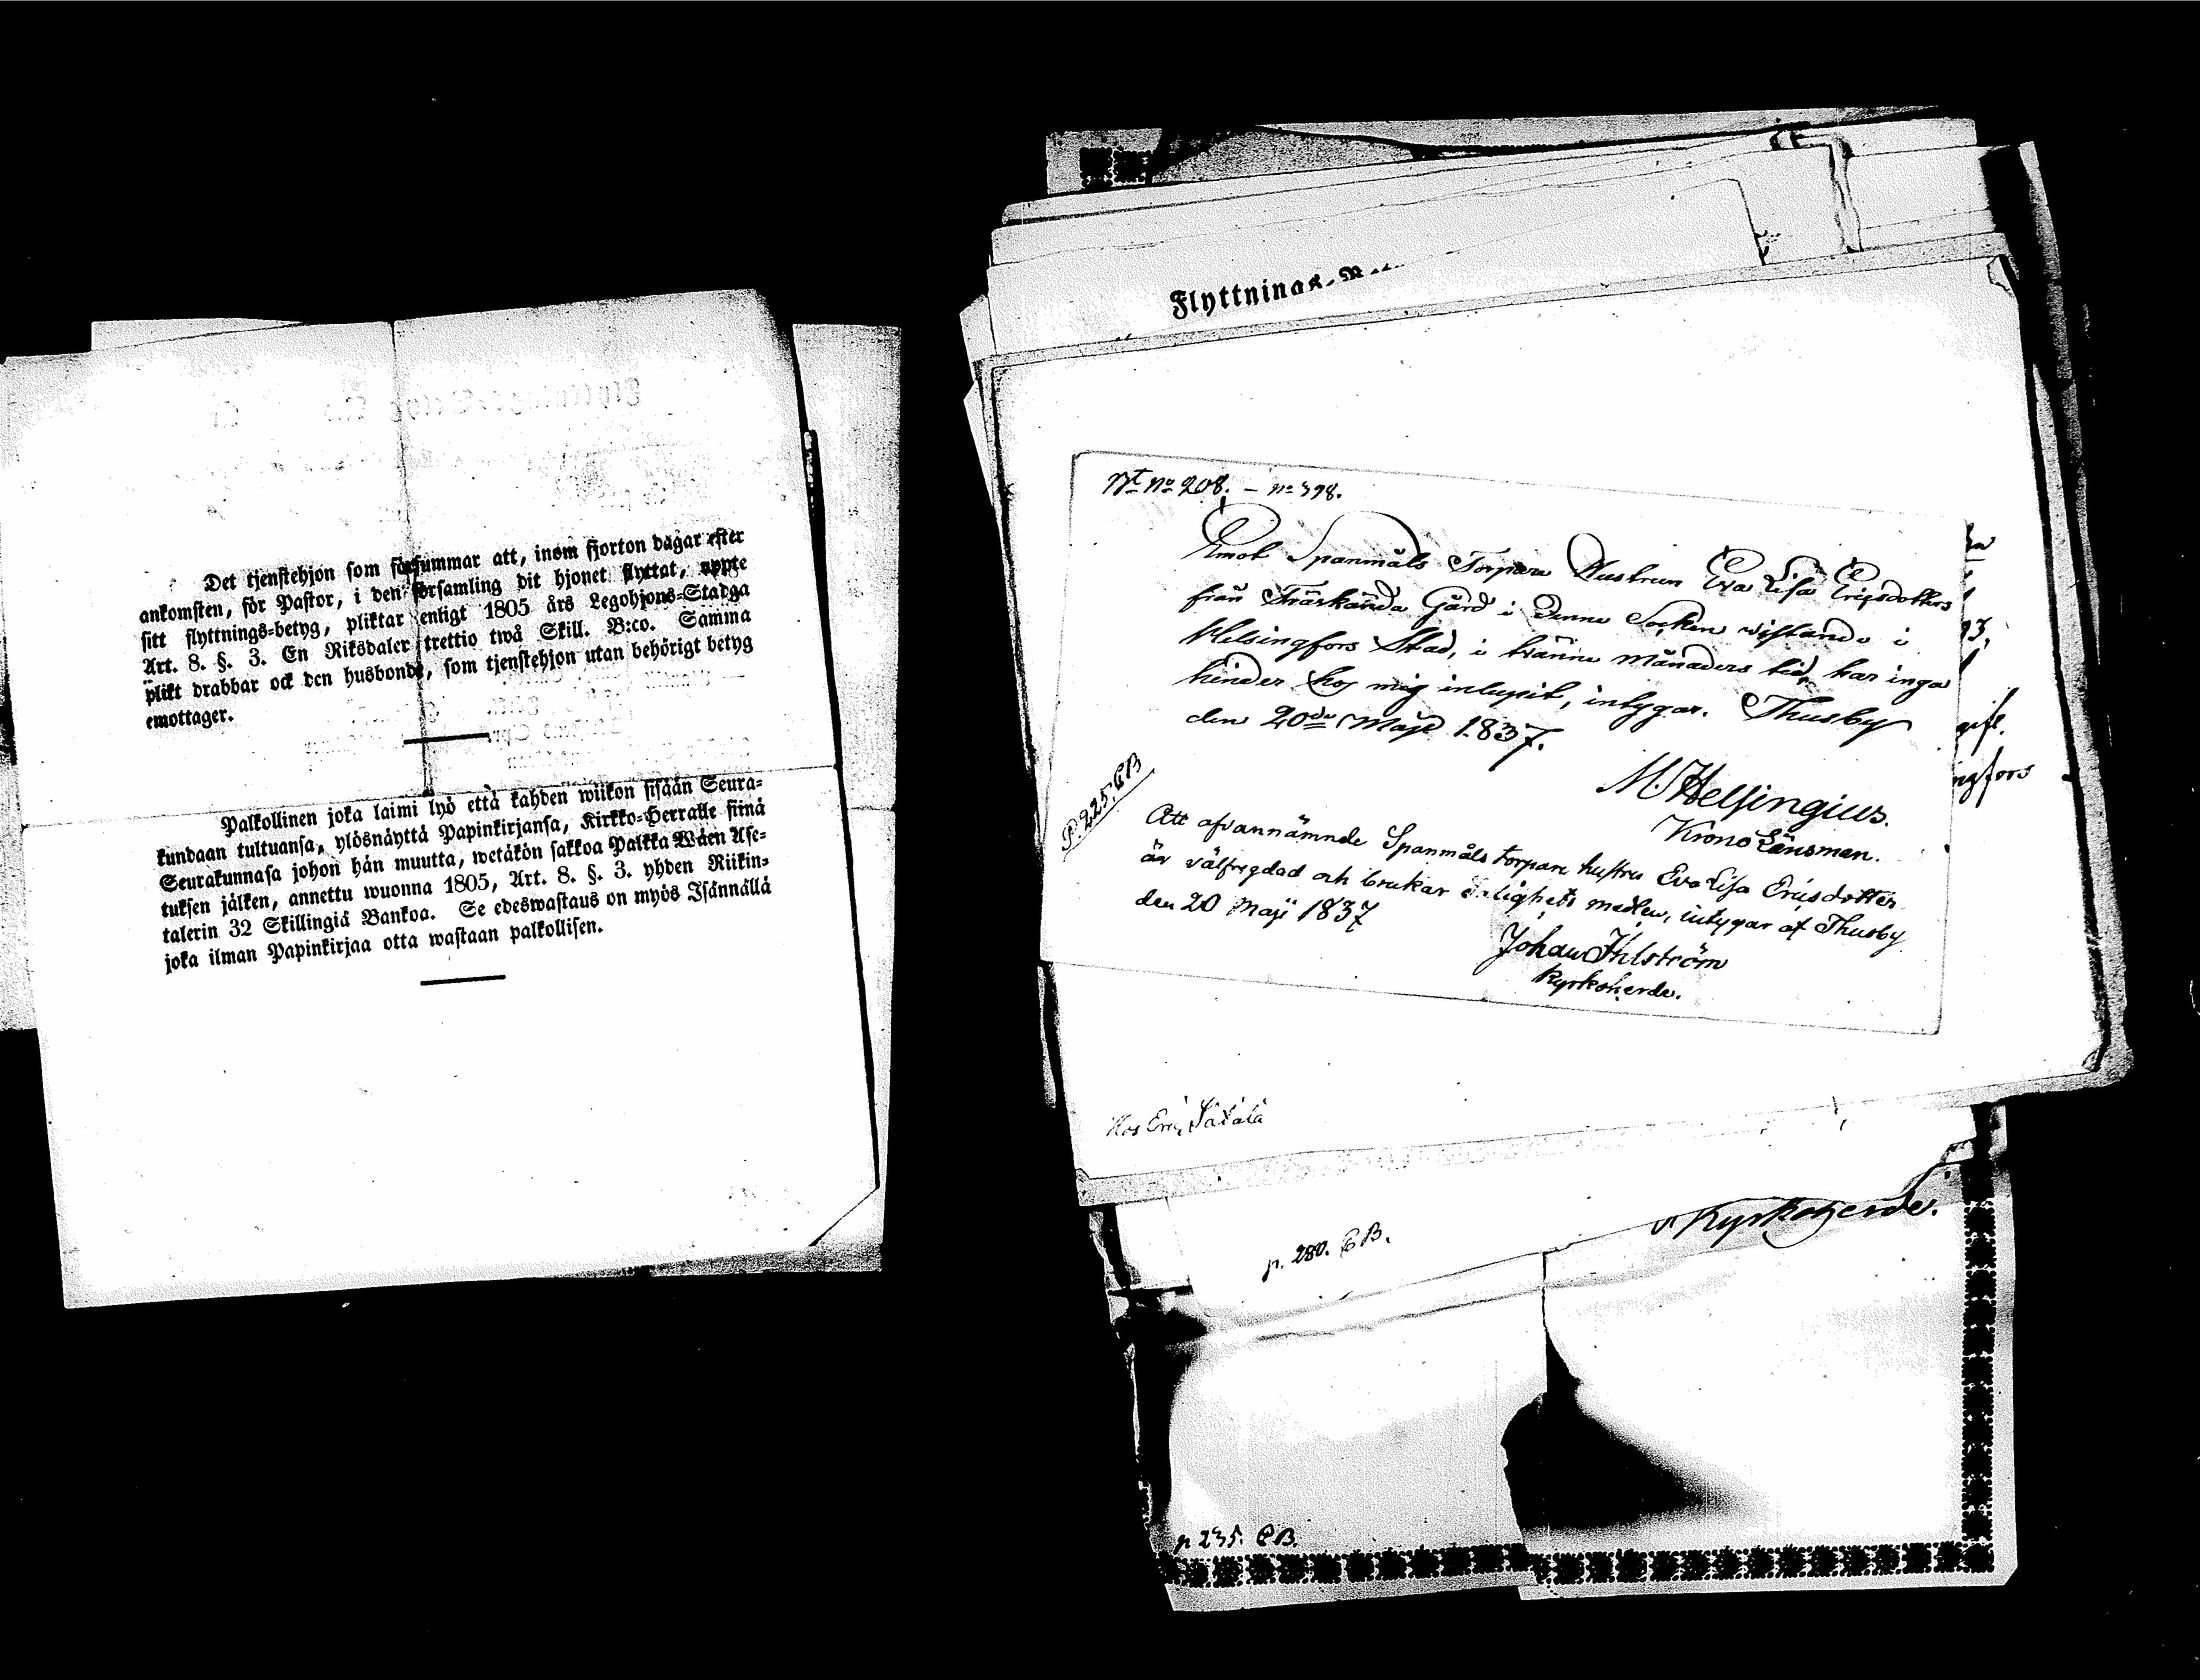 Det tjenstehjon som försummar att, inom fjorton dagar efter
ankomsten, för Pastor, i den församling dit hjonet flyttat, uppte
sitt flyttnings-betyg, pliktar enligt 1805 års Legohjons-Stadga
Art. 8. §. 3. En Riksdaler trettio twå Skill. B:co. Samma
plikt drabbar ock den husbonde, som tjenstehjon utan behörigt betyg
emottager.
Palkollinen joka laimi lyö että kahden wiikon sisään Seura-
kundaan tultuansa, ylösnäyttä Papinkirjansa, Kirkko-Herralle siinä
Seurakunnasa johon hän muutta, wetäkön sakkoa Palkka Wäen Ase-
tuksen jälken, annettu wuonna 1805, Art. 8. §. 3. yhden Riikin-
talerin 32 Skillingiä Bankoa. Se edeswastaus on myös Isännällä
joka ilman Papinkirjaa otta wastaan palkollisen.
Flyttnings-
No 208. – No 398.
Emot Spanmåls Torpare Hustrun Eva Lisa Ericsdotters
från Träskända Gård i Denne Socken vistande i
Helsingfors Stad, i tvänne månaders tid, har inga
hinder hos mig inlupit, intygar. Thusby
den 20de Maji 1837.
M Helsingius.
Krono Länsman.
P. 225. CB
Att ofvannämnde Spanmåls torpare hustru Eva Lisa Ericsdotter
är välfrejdad och brukar salighets medlen, intygar af Thusby
den 20 Maji 1837
Johan Ihlström
Kyrkoherde.
93,
gift.
ngfors
Hos Eric
p. 280. CB.
Kyrkoherde.
p 235. CB.